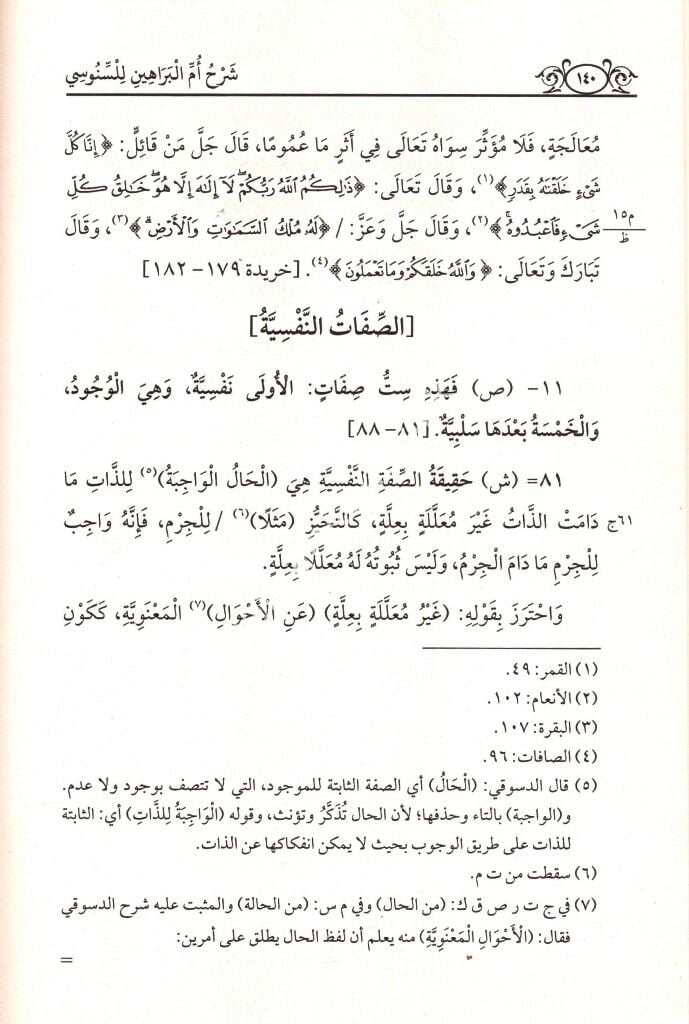 ١٤٠
شَرْحُ أُمِّ الْبَرَاهِينِ لِلْسَّنُوسِي
مُعَالَجَةٍ، فَلَا مُؤَثِّرَ سِوَاهُ تَعَالَى فِي أَثَرٍ مَا عُمُومًا، قَالَ جَلَّ مَنْ قَائِلٌ: ﴿إِنَّا كُلَّ
شَيْءٍ خَلَقْنَاهُ بِقَدَرٍ﴾(١)، وَقَالَ تَعَالَى: ﴿ذَٰلِكُمُ اللَّهُ رَبُّكُمْ لَا إِلَٰهَ إِلَّا هُوَ خَالِقُ كُلِّ
م١٥
ظ
شَيْءٍ فَاعْبُدُوهُ﴾(٢)، وَقَالَ جَلَّ وَعَزَّ: / ﴿لَهُ مُلْكُ السَّمَاوَاتِ وَالْأَرْضِ﴾(٣)، وَقَالَ
تَبَارَكَ وَتَعَالَى: ﴿وَاللَّهُ خَلَقَكُمْ وَمَا تَعْمَلُونَ﴾(٤). [خريدة ١٧٩- ١٨٢]
[الصِّفَاتُ النَّفْسِيَّةُ]
١١- (ص) فَهَذِهِ سِتُّ صِفَاتٍ: الْأُولَى نَفْسِيَّةٌ، وَهِيَ الْوُجُودُ،
وَالْخَمْسَةُ بَعْدَهَا سَلْبِيَّةٌ. [٨١- ٨٨]
٨١= (ش) حَقِيقَةُ الصِّفَةِ النَّفْسِيَّةِ هِيَ (الْحَالُ الْوَاجِبَةُ)(٥) لِلذَّاتِ مَا
٦١ج
دَامَتْ الذَّاتُ غَيْرَ مُعَلَّلَةٍ بِعِلَّةٍ، كَالتَّحَيُّزِ (مَثَلًا)(٦) / لِلْجِرْمِ، فَإِنَّهُ وَاجِبٌ
لِلْجِرْمِ مَا دَامَ الْجِرْمُ، وَلَيْسَ ثُبُوتُهُ لَهُ مُعَلَّلًا بِعِلَّةٍ.
وَاحْتَرَزَ بِقَوْلِهِ: (غَيْرُ مُعَلَّلَةٍ بِعِلَّةٍ) (عَنِ الْأَحْوَالِ)(٧) الْمَعْنَوِيَّةِ، كَكَوْنِ
(١) القمر: ٤٩.
(٢) الأنعام: ١٠٢.
(٣) البقرة: ١٠٧.
(٤) الصافات: ٩٦.
(٥) قال الدسوقي: (الْحَالُ) أي الصفة الثابتة للموجود، التي لا تتصف بوجود ولا عدم.
و(الواجبة) بالتاء وحذفها؛ لأن الحال تُذَكَّرُ وتؤنث، وقوله (الْوَاجِبَةُ لِلذَّاتِ) أي: الثابتة
للذات على طريق الوجوب بحيث لا يمكن انفكاكها عن الذات.
(٦) سقطت من ت م.
(٧) في ج ت ر ص ق ك: (من الحال) وفي م س: (من الحالة) والمثبت عليه شرح الدسوقي
فقال: (الْأَحْوَالِ الْمَعْنَوِيَّةِ) منه يعلم أن لفظ الحال يطلق على أمرين:
=